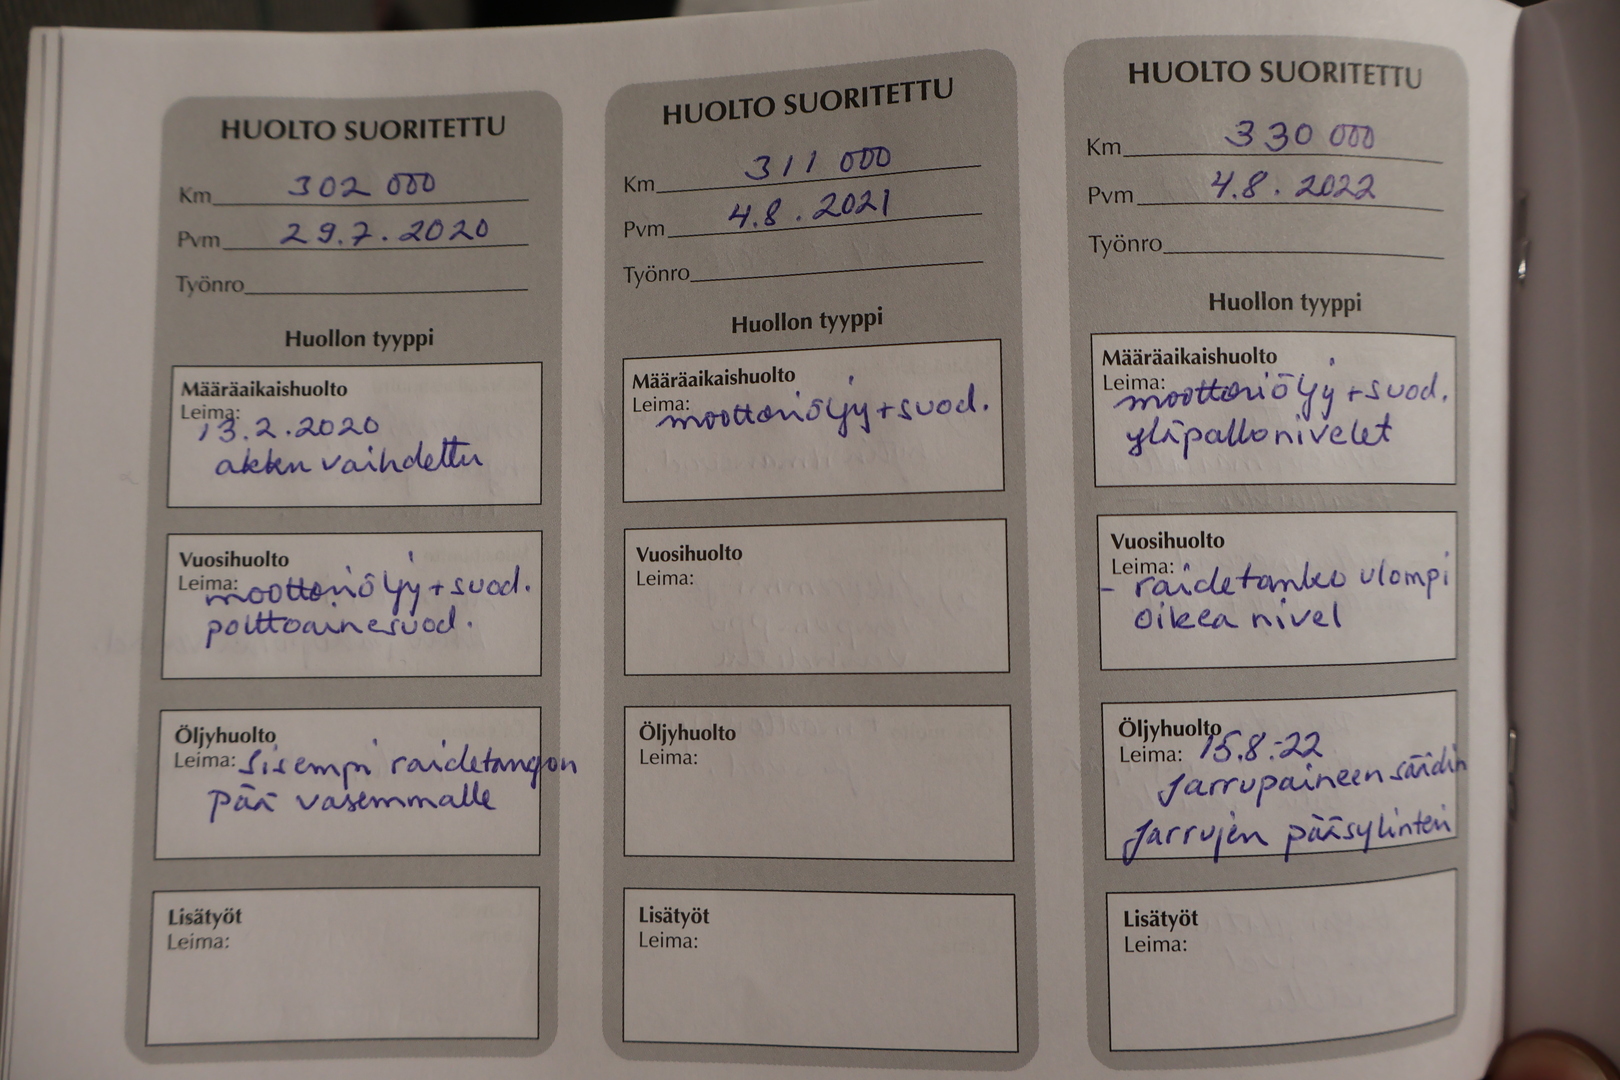 HUOLTO SUORITETTU
Km 302 000
Pvm 29.7.2020
Työnro
Huollon tyyppi
Määräaikaishuolto
Leima:
13.2.2020
akku vaihdettu
Vuosihuolto
Leima:
moottoriöljy + suod.
polttoainesuod.
Öljyhuolto
Leima: Sisempi raidetangon
pää vasemmalle
Lisätyöt
Leima:
HUOLTO SUORITETTU
Km 311 000
Pvm 4.8.2021
Työnro
Huollon tyyppi
Määräaikaishuolto
Leima:
moottoriöljy + suod.
Vuosihuolto
Leima:
Öljyhuolto
Leima:
Lisätyöt
Leima:
HUOLTO SUORITETTU
Km 330 000
Pvm 4.8.2022
Työnro
Huollon tyyppi
Määräaikaishuolto
Leima:
moottoriöljy + suod.
yläpallonivelet
Vuosihuolto
Leima:
- raidetanko ulompi
oikea nivel
Öljyhuolto
Leima: 15.8.-22
Jarrupaineen säädin
Jarrujen pääsylinteri
Lisätyöt
Leima: